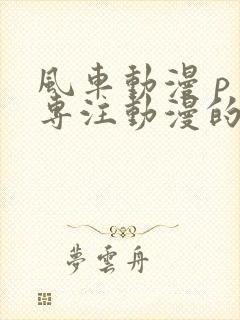 風車動漫 p
専注動漫的
夢雲舟